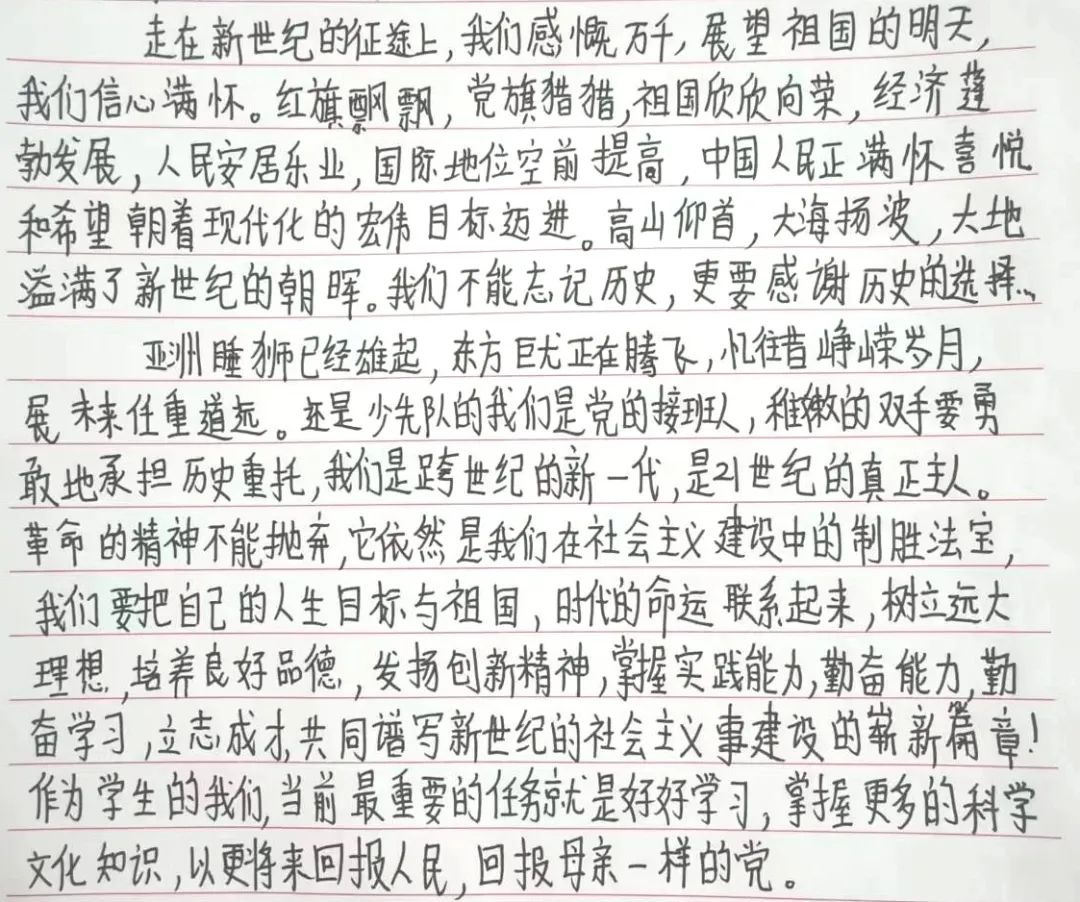 走在新世纪的征途上,我们感慨万千,展望祖国的明天,
我们信心满怀。红旗飘飘,党旗猎猎,祖国欣欣向荣,经济蓬
勃发展,人民安居乐业,国际地位空前提高,中国人民正满怀喜悦
和希望朝着现代化的宏伟目标迈进。高山仰首,大海扬波,大地
溢满了新世纪的朝晖。我们不能忘记历史,更要感谢历史的选择...
亚洲睡狮已经雄起,东方巨龙正在腾飞,忆往昔峥嵘岁月,
展未来任重道远。还是少先队的我们是党的接班人,稚嫩的双手要勇
敢地承担历史重托,我们是跨世纪的新一代,是21世纪的真正主人。
革命的精神不能抛弃,它依然是我们在社会主义建设中的制胜法宝,
我们要把自己的人生目标与祖国,时代的命运联系起来,树立远大
理想,培养良好品德,发扬创新精神,掌握实践能力,勤奋能力,勤
奋学习,立志成才,共同谱写新世纪的社会主义事建设的崭新篇章!
作为学生的我们,当前最重要的任务就是好好学习,掌握更多的科学
文化知识,以更将来回报人民,回报母亲一样的党。